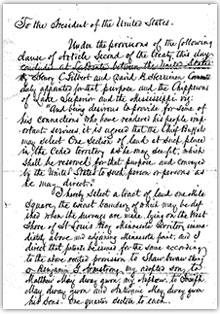 To the President of the United States.
Under the provisions of the following
clause of Article Second of the treaty this day
concluded at LaPointe between the United States
by Henry C. Gilbert and David B. Herriman Commis
duly appointed for that purpose and the Chippewas
of Lake Superior and the Mississippi viz:
"And being desirous to provide for some of
his connections who have rendered his people impor-
portant services, it is agreed that the Chief Buffalo
may select One Section of land at such place
in the Ceded Territory as he may see fit, which
shall be reserved for that purpose and conveyed
by the United States to such person or persons as
he may direct."
I hereby select a tract of land one mile
Square, the exact boundary of which may be def-
ined when the surveys are made, lying on the West
Shore of St Louis Bay Minnesota Territory imme-
diately above and adjoining Minnesota Point, and I
direct that patents be issued for the same according
to the above recited provision to
or Benjamin G. Armstrong, my adopted son, to
Matthew May dway gwon my nephew, to Joseph
May dway gwon and May dway gwon
his sons One quarter section to each.